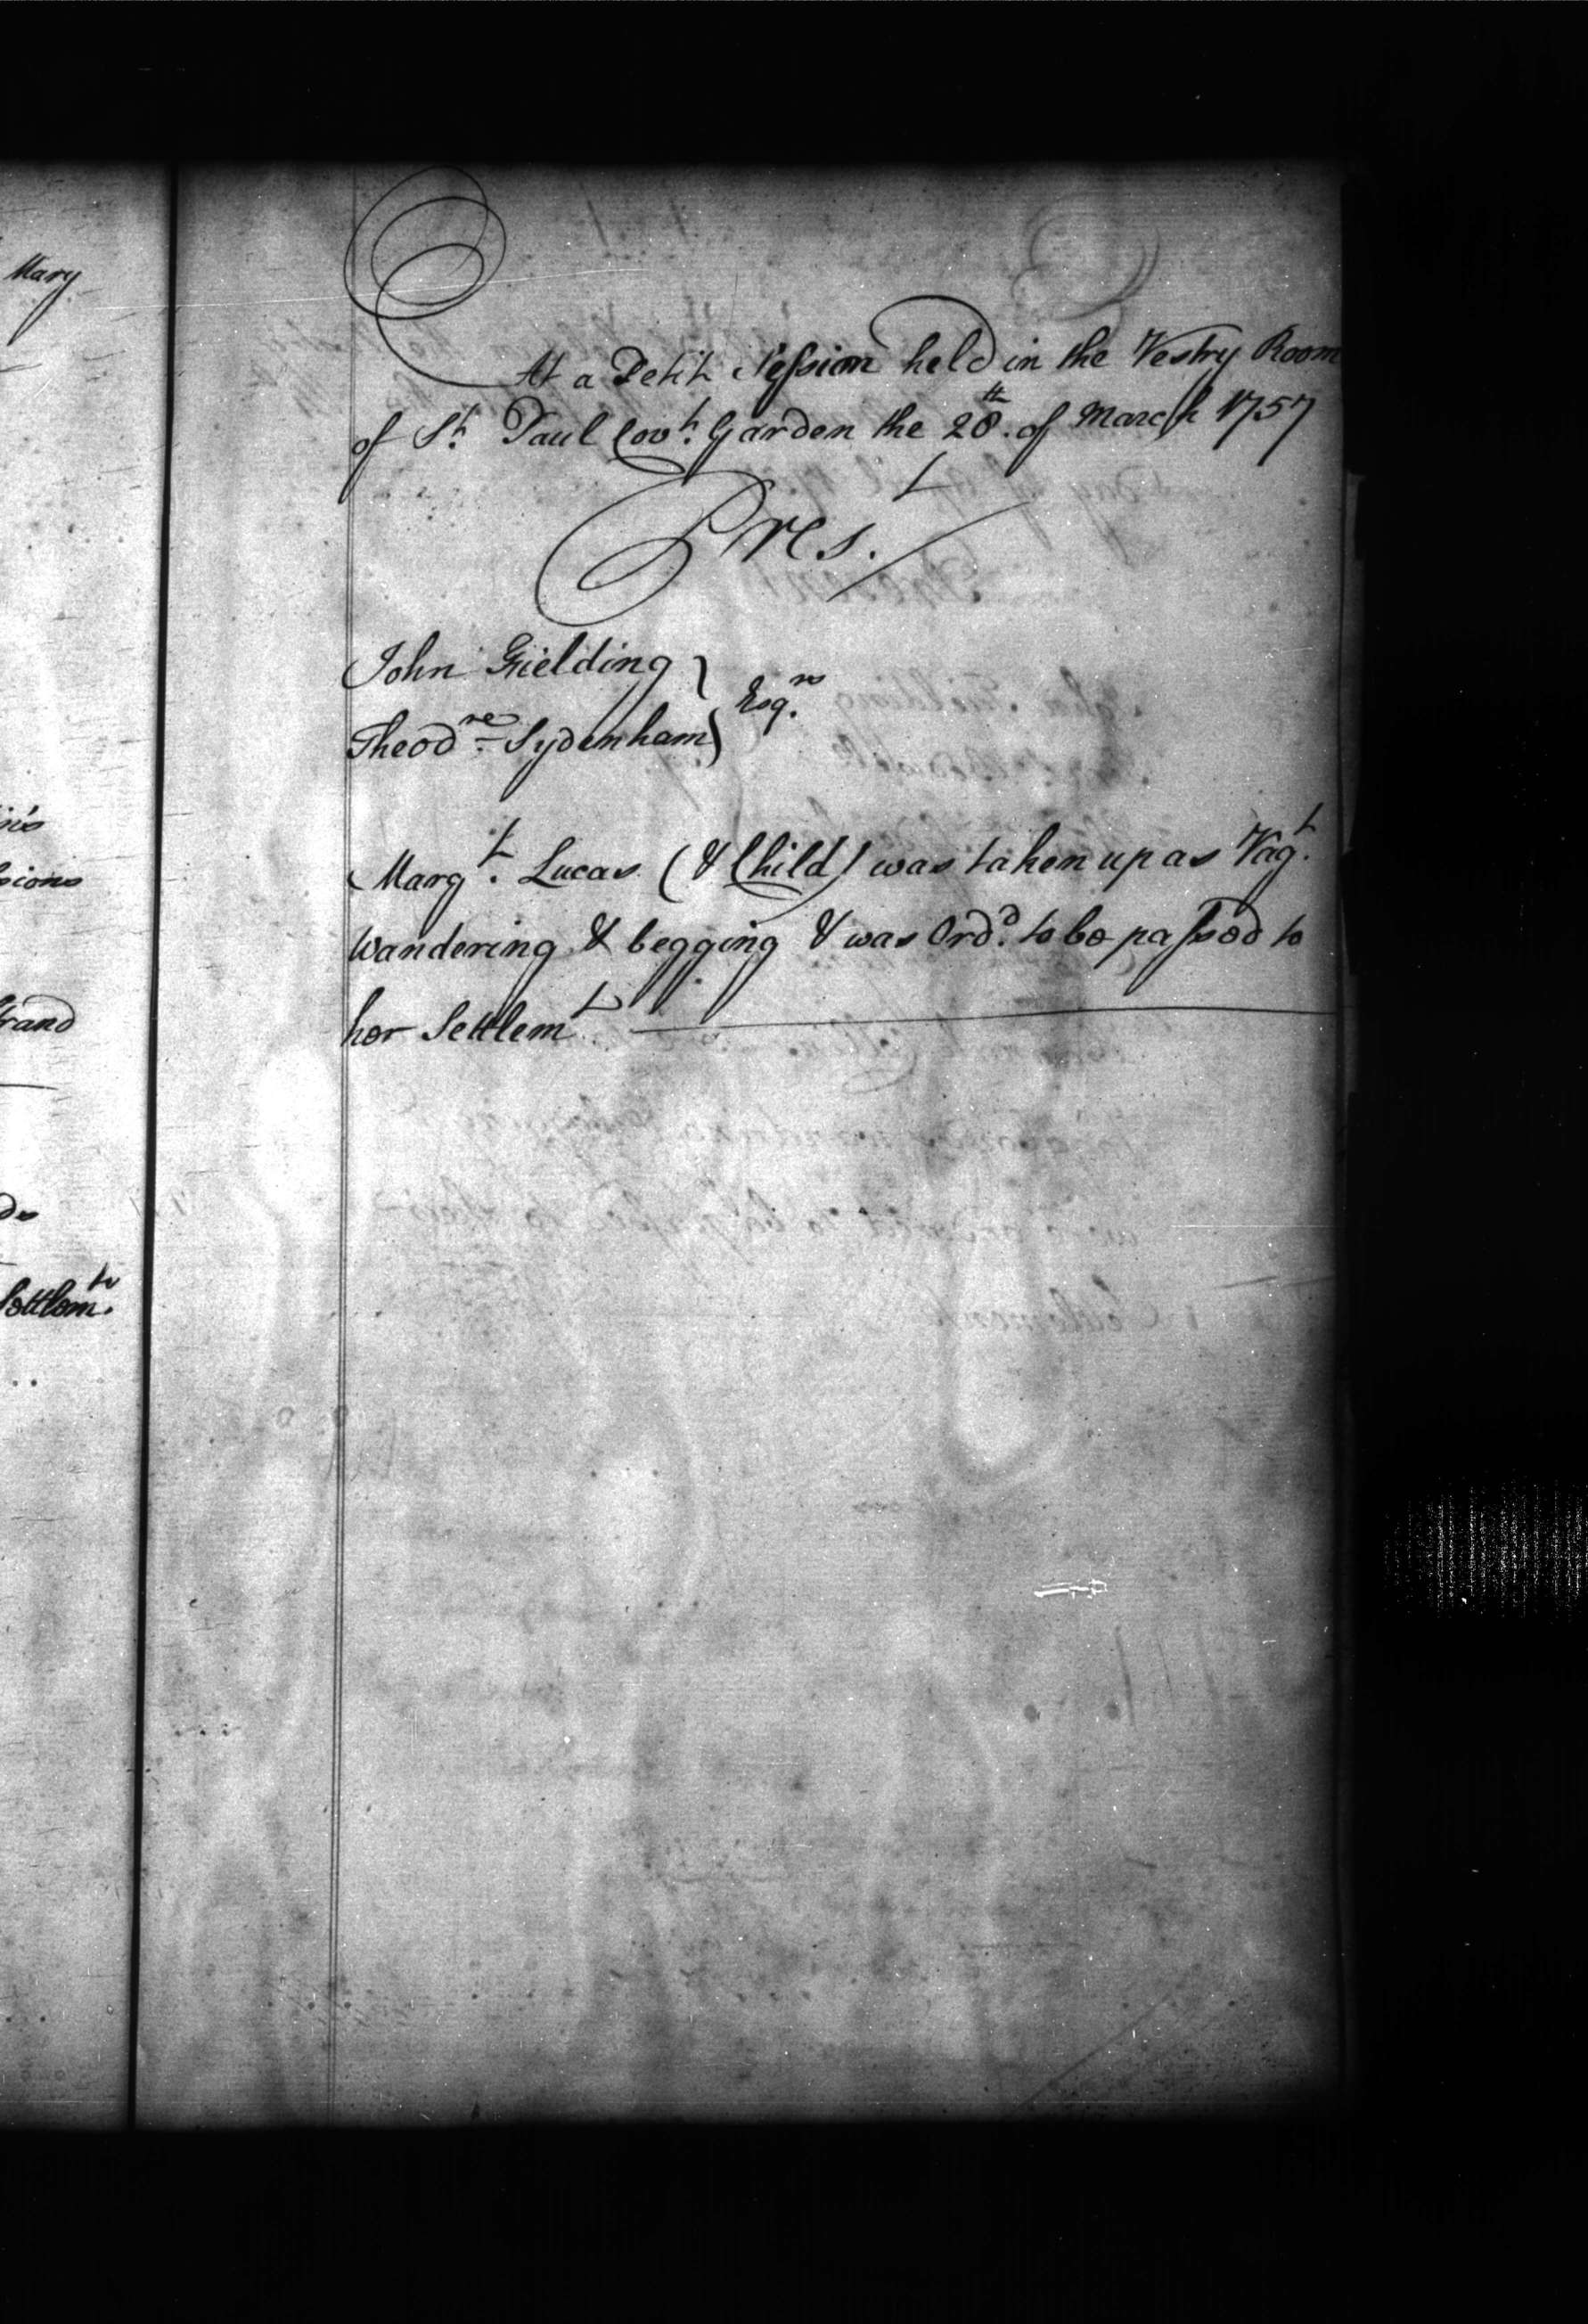 Mary
rand
Settlemts.
At a Petit Session held in the Vestry Room
of St. Paul Covt. Garden the 28th. of March 1757
Prest.
John Fielding } Esqrs.
Theodre. Sydenham }
Margt. Lucas (& Child) was taken up as Vagt.
Wandering & begging & was Ordd. to be passed to
her Settlemt.